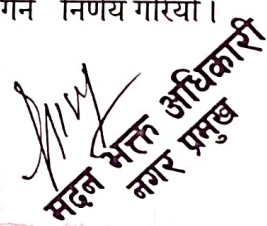 गर्ने निर्णय गरियो ।
मदन भक्त अधिकारी
नगर प्रमुख